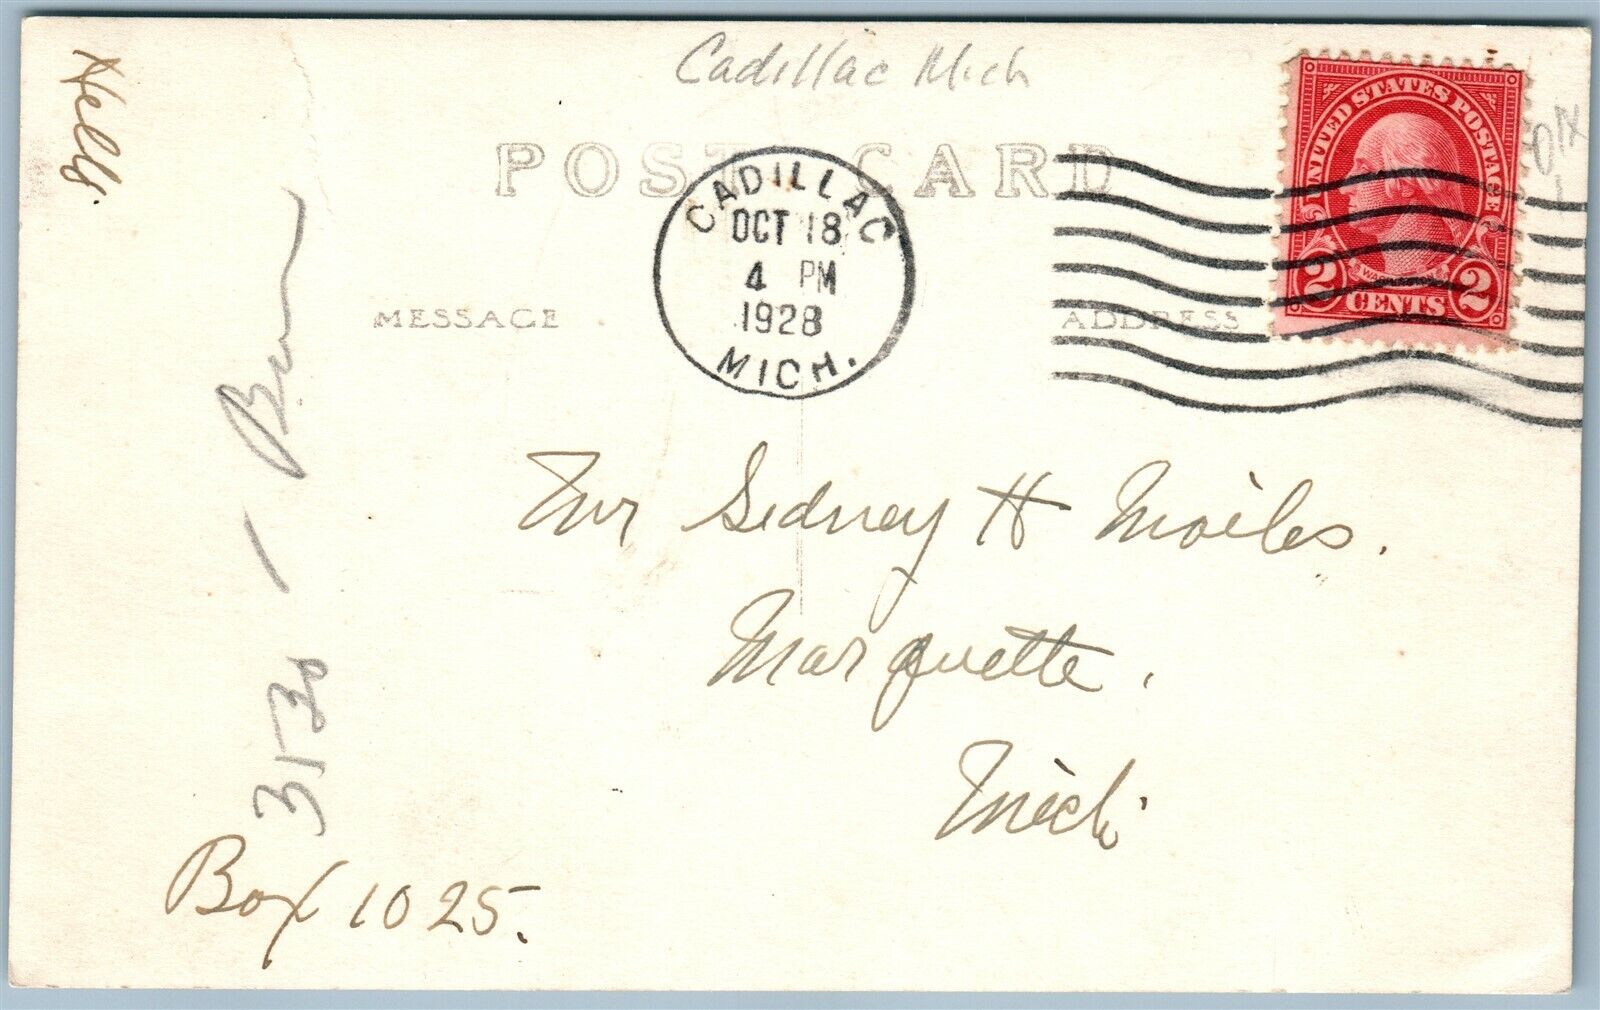 Cadillac Mich
POST CARD
CADILLAC
OCT 18
4 PM
1928
MICH.
UNITED STATES POSTAGE
WASHINGTON
2 CENTS 2
MESSAGE
ADDRESS
Mr Sidney H Moiles.
Marquette.
Mich.
Box 1025.